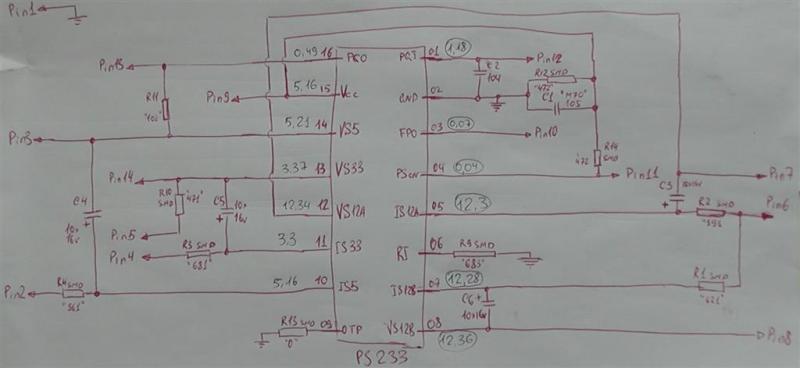 Pin1
Pin13
0,49 16
PGO
PGI
01
1,18
Pin12
R2
104
R12 SMD
"472"
R11
"102"
5,16 15
Vcc
GND
02
C1
"M70"
105
Pin9
5,21 14
VS5
FPO
03
0,07
Pin10
Pin3
R14
SMD
472
3.37 13
VS33
PSON
04
0,04
Pin11
Pin7
Pin14
C3
10x16v
R10
SMD
"471"
C5
10x
16v
C4
10x
16v
12,34 12
VS12A
IS12A
05
12,3
R2 SMD
Pin6
Pin5
Pin4
R3 SMD
"681"
3.3 11
IS33
RI
06
R9 SMD
"683"
Pin2
R4 SMD
"561"
5,16 10
IS5
IS12B
07
12,28
R1 SMD
"621"
C6
10x16v
R13 SMD
"0"
09
OTP
VS12B
08
12,36
Pin8
PS233